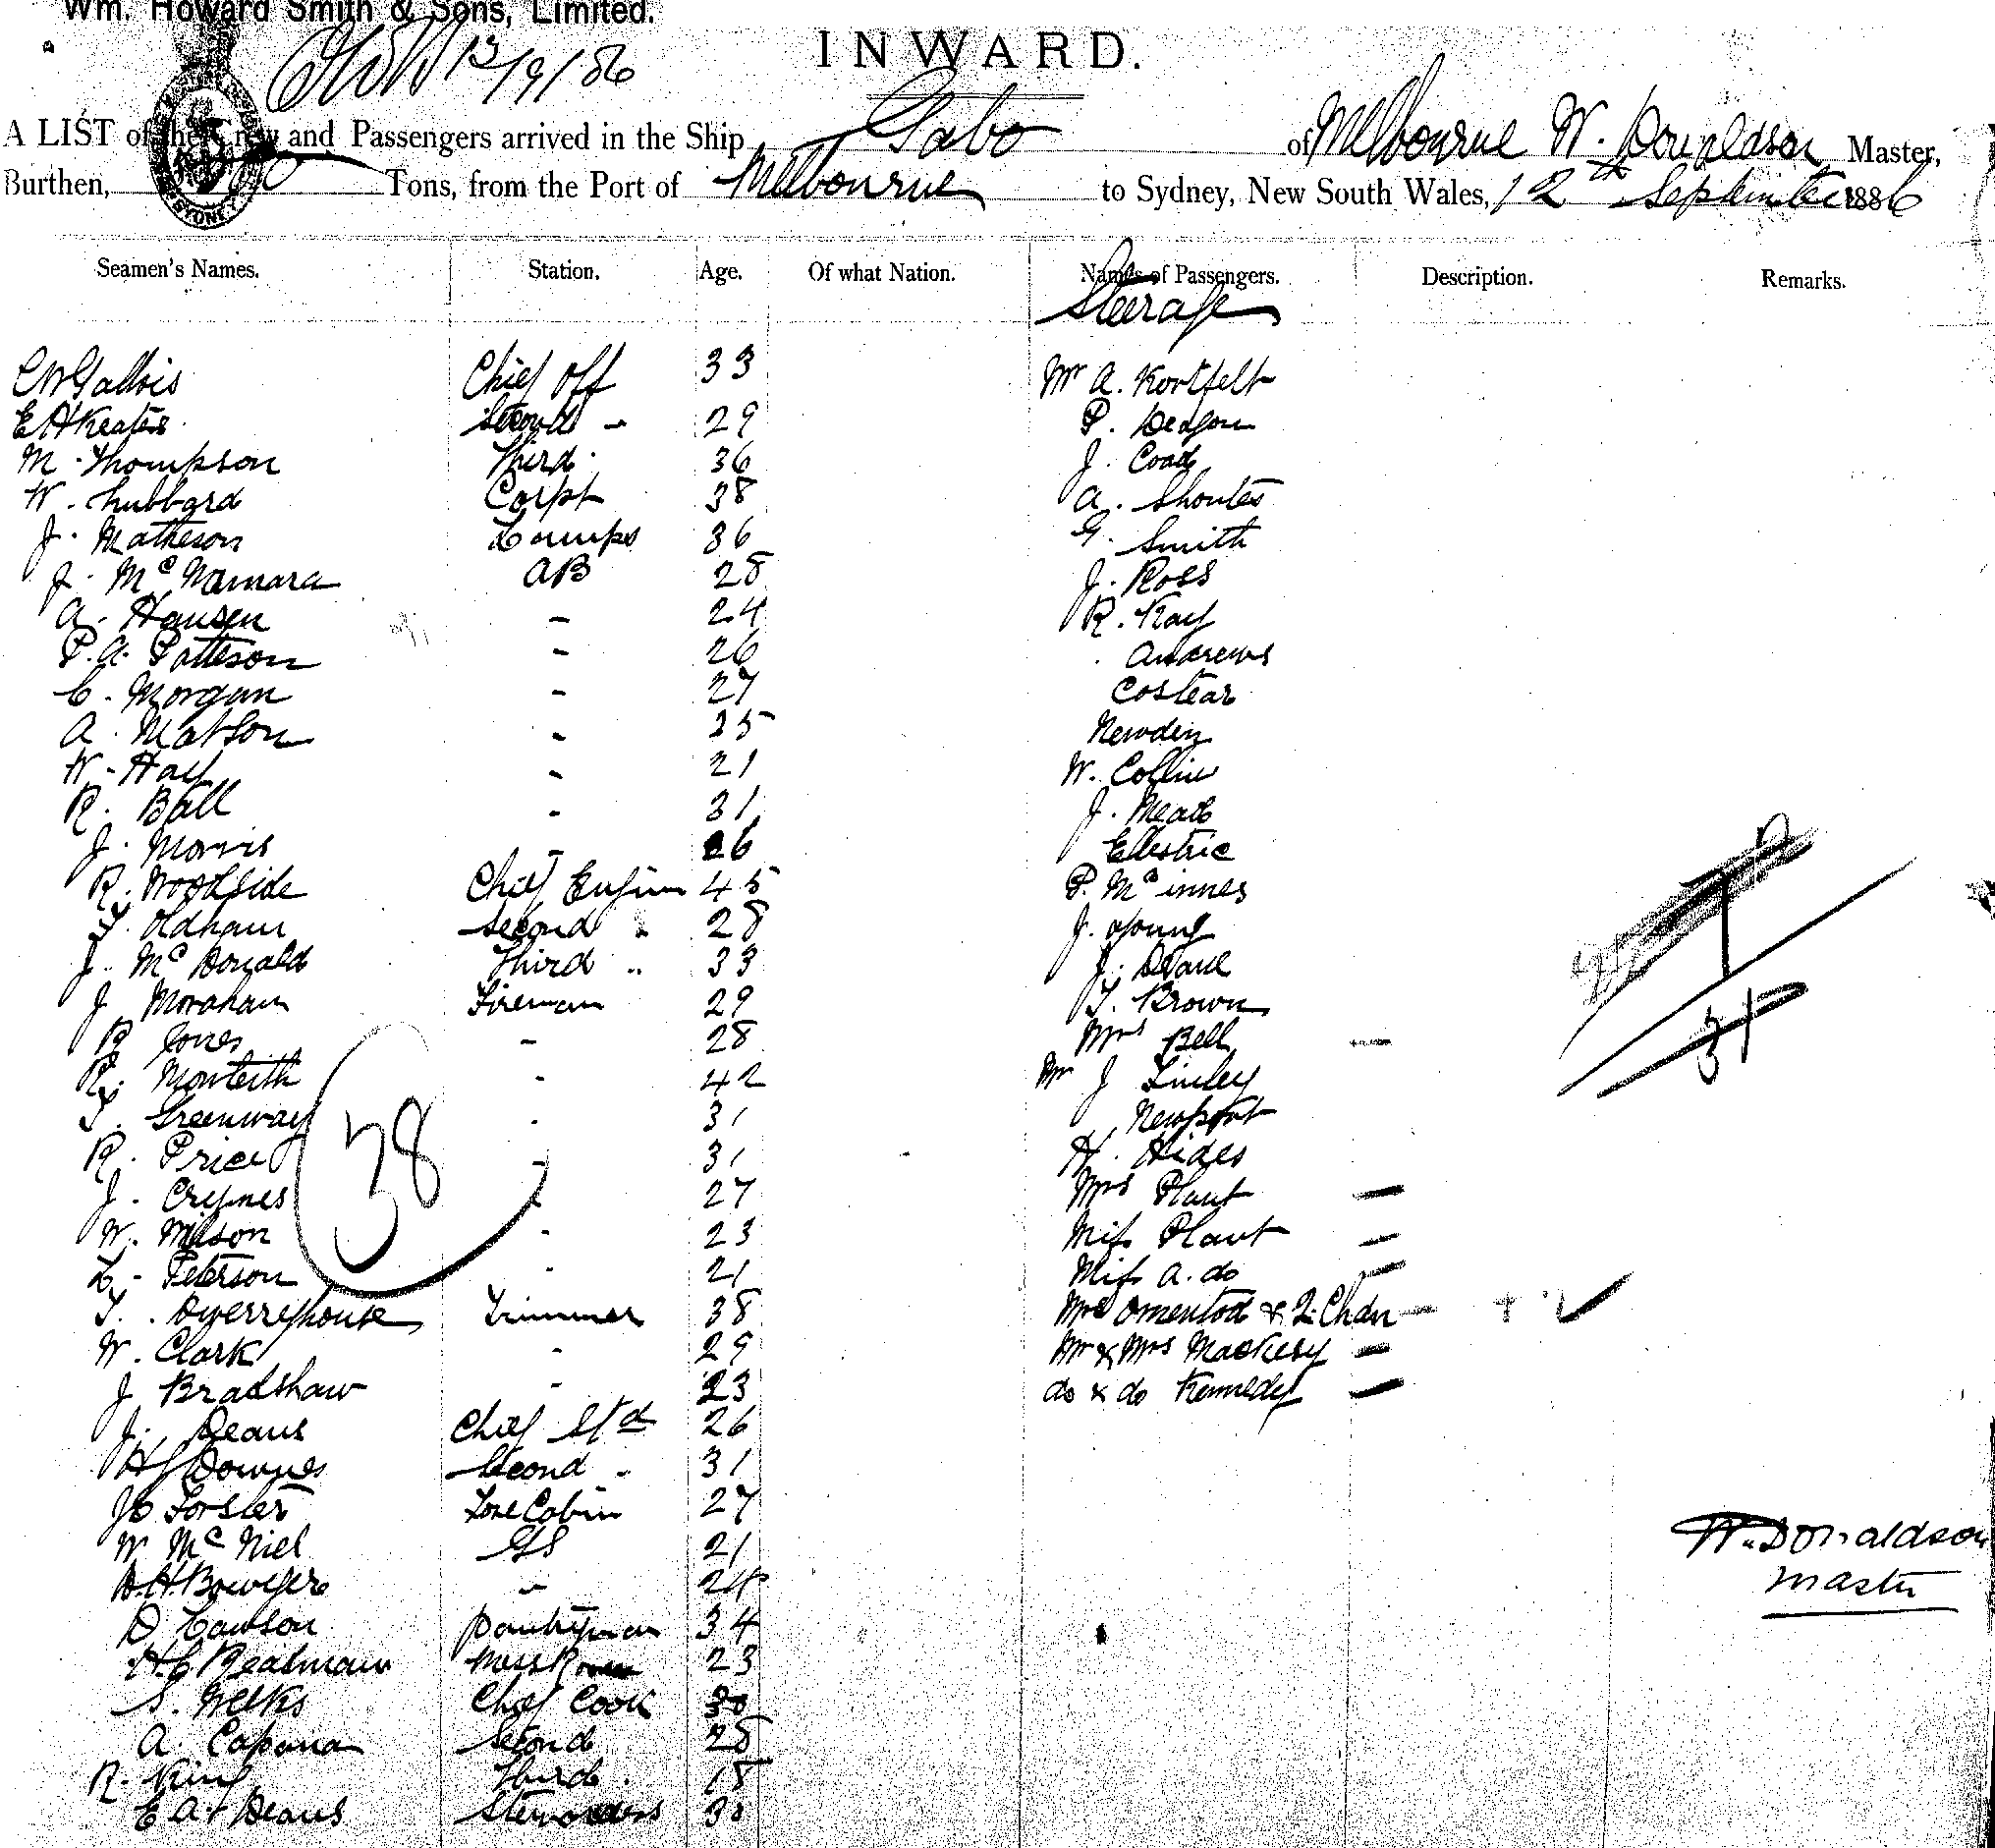 Wm. Howard Smith & Sons, Limited.
13/9/86
INWARD.
A LIST of the Crew and Passengers arrived in the Ship Gabo of Melbourne W. Donaldson Master,
Burthen, Tons, from the Port of Melbourne to Sydney, New South Wales, 12th September 1886
SYDNEY
Seamen's Names. Station. Age. Of what Nation. Names of Passengers. Description. Remarks.
Steerage
Chief Off 33 Mr A. Kortfelt
E H Keates Second " 29 P.
M. Thompson Third 36 J. Coad
W. Hubbard Carpt 38 A. Shoutes
J. Matheson Lamps 36 G. Smith
J. McNamara AB 28 J. Ross
A. Hansen - 24 R. Kay
P. A. Patteson - 26 Andrews
C. Morgan - 27 Costear
A. Matson - 25 Newdin
W. Hay - 21 W. Collin
R. Ball - 31 J. Meade
J. Morris - 26 Ellestric
R. Woodside Chief Engin 45 P. McInnes
T. Oldham Second " 28 J. Young
J. McDonald Third " 33 J. Deane
J. Morahan Fireman 29 T. Brown
R. Jones - 28 Mrs Bell -
R. Monteith - 42 Mr J Linley
T. Greenway - 31 Newport
R. Price - 31 H. Hides
J. Crymes - 27 Mrs Plant -
W. Milson - 23 Miss Plant -
L. Peterson - 21 Miss A. do -
T. Dwerryhouse Trimmer 38 Mrs Omentod & 2 Chdn -
W. Clark - 29 Mr & Mrs Mackesy -
J Bradshaw - 23 do & do Kennedy -
J. Deans Chief Std 26
H J Downes Second " 31
Jo Forster Fore Cabin 27
W McNiel GS 21
Bowyer " 24
D Lawson Pantryman 34
H. C. Realmain Mess Room 23
S. Weeks Chief Cook 30
A. Capana Second 25
R. King Third 18
E A Deans Stewardess 30
38
31
W. Donaldson
Master